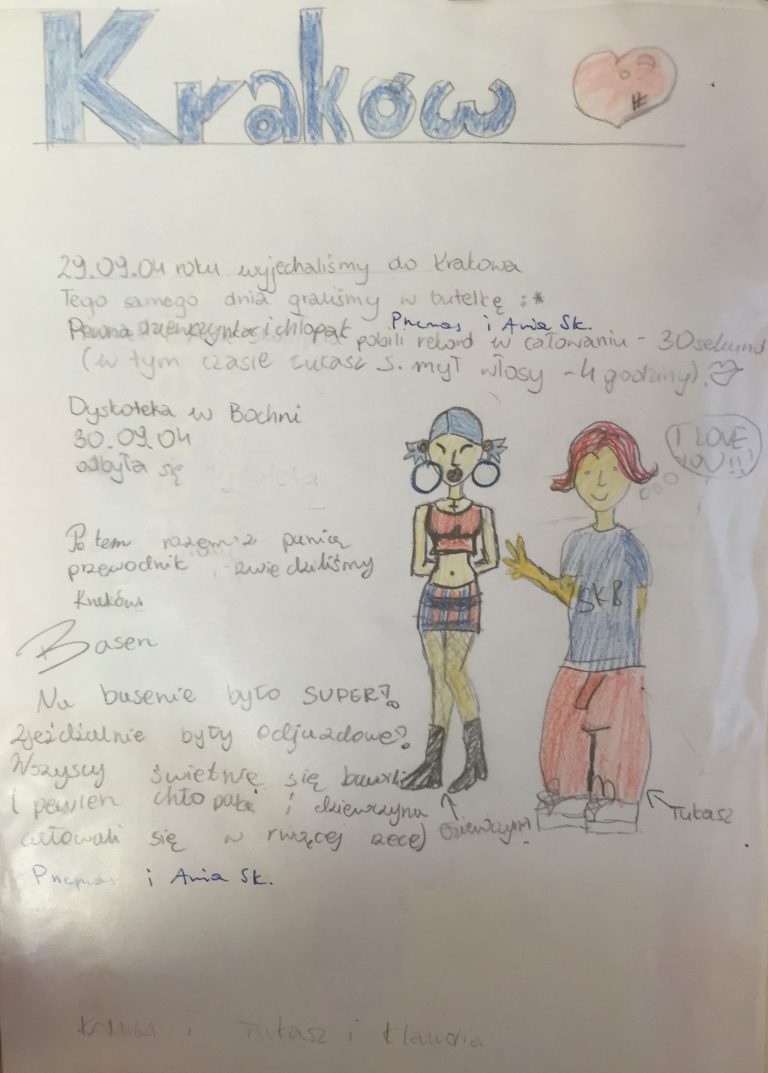 Kraków
29.09.04 roku wyjechaliśmy do Krakowa
Tego samego dnia graliśmy w butelkę :*
Pewna dziewczynka i chłopak i Ania Sk. pobili rekord w całowaniu - 30 sekund
(w tym czasie Łukasz S. mył włosy - 4 godziny).
Dyskoteka w Bochni
30.09.04
odbyła się
I LOVE
YOU!!!
Potem razem z panią
przewodnik zwiedziliśmy
Kraków
SKB
Basen
Na basenie było SUPER!
Zjeżdżalnie były odjazdowe!
Wszyscy świetnie się bawili
(pewien chłopak i dziewczyna
całowali się w rwącej rzece)
dziewczyna
Łukasz
i Ania Sk.
i Łukasz i Klaudia